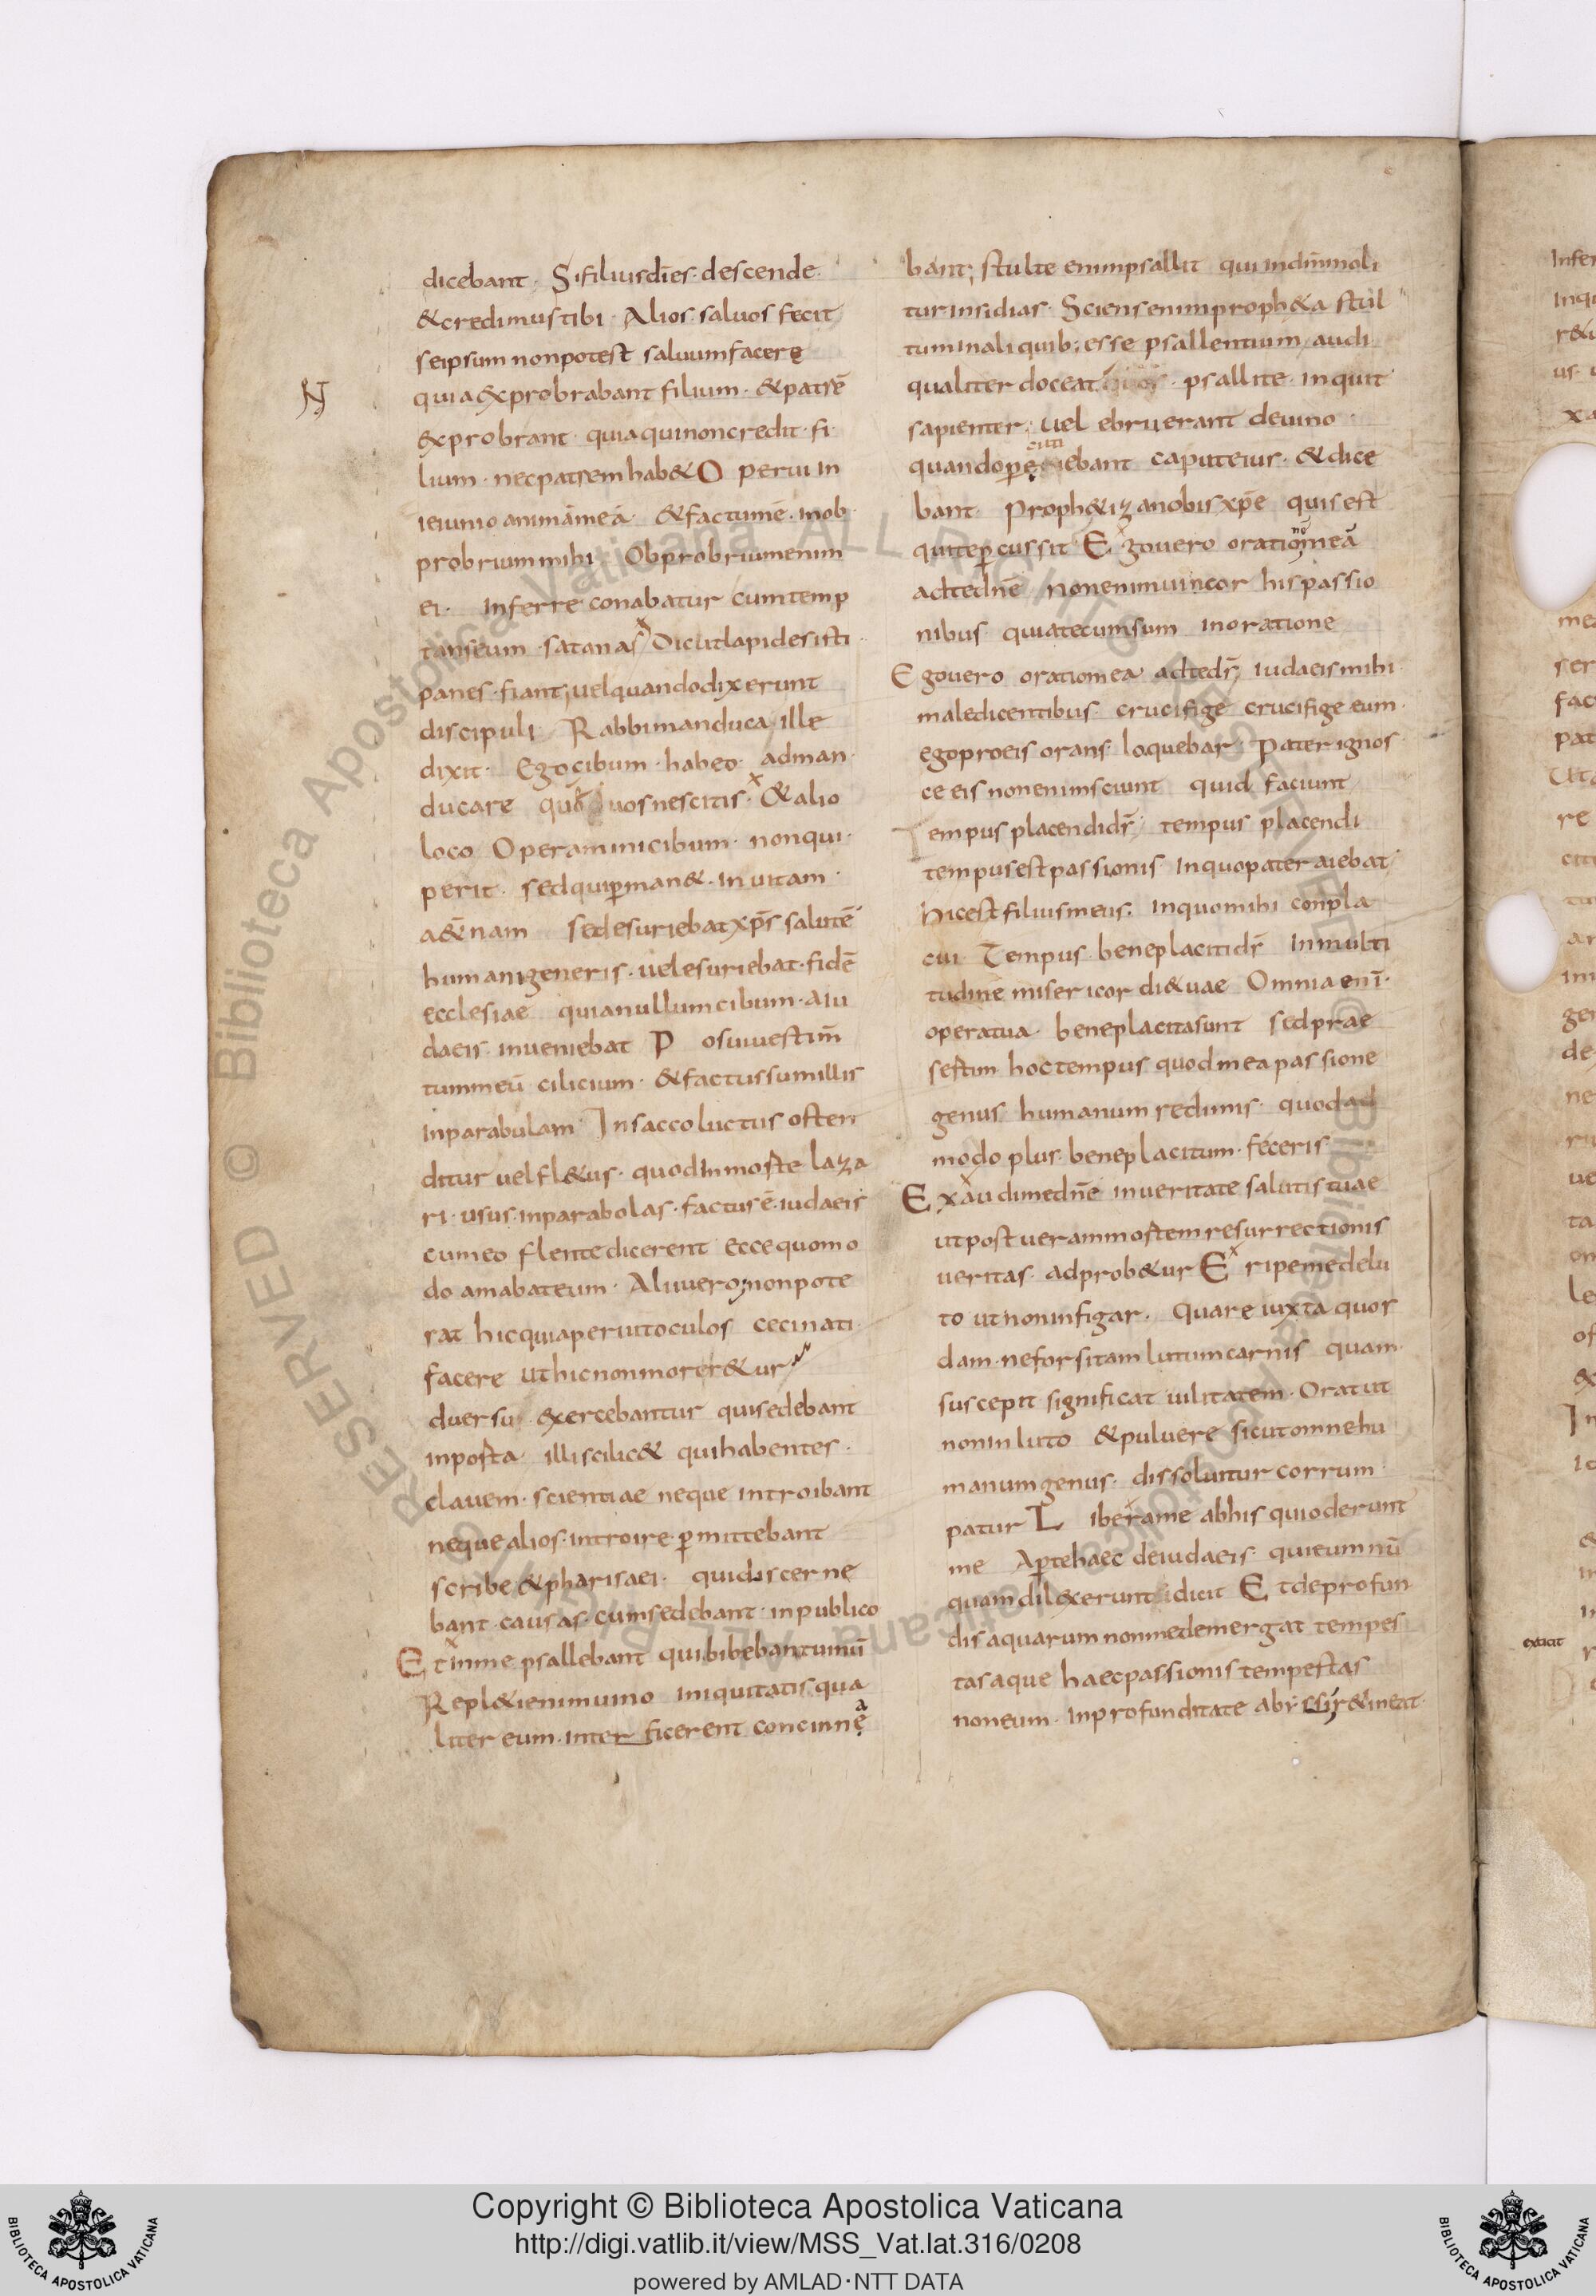 dicebant· Si filius dī es· descende·
& credimus tibi· Alios saluos fecit
se ipsum non potest saluum facere
quia exprobrabant filium· & patrē
exprobrant· quia qui non credit· fi
lium· nec patrem hab& O perui in
ieiunio animā meā· & factum ē· in ob
probrium mihi Obprobrium enim
ei· inferre conabatur cum temp
tans eum· satanas Dic ut lapides isti
panes· fiant; uel quando dixerunt
discipuli· Rabbi manduca ille
dixit· Ego cibum· habeo· ad man
ducare quē uos nescitis· & alio
loco Operamini cibum· non qui·
perit· sed qui ꝑman&· in uitam·
a&̄nam sed esuriebat xp̄s salutē
humani generis· uel esuriebat· fidē
ecclesiae quia nullum cibum· a iu
daeis· inueniebat P osui uestim̄
tum meū cilicium· & factus sum illis
in parabulam In sacco luctus osten
ditur uel fl&us· quod in morte laza
ri· usus· in parabolas· factus ē· iudaeis
cum eo flente dicerent ecce quomo
do amabat eum· Alii uero; non pote
rat hic qui aperuit oculos ceci nati·
facere ut hic non morer&ur
duersu exercebantur qui sedebant
in porta· illi scilic& qui habentes·
clauem· scientiae neque introibant
neque alios· introire ꝑmittebant
scribe & pharisaei· qui discerne
bant· causas cum sedebant· in publico
Et in me psallebant qui bibebant uinū
Repl&i enim uino iniquitatis qua
liter eum· interficerent concinnę
a
bant; stulte enim psallit qui in dn̄m moli
tur insidias· Sciens enim proph&a stul
tum in aliquib; esse psallentium audi
qualiter doceat· psallite· inquit
sapienter; uel ebrii erant de uino
quando ꝑ ciebant caput eius· & dice
cuti
bant· Proph&iza nobis xp̄e quis est
qui te ꝑcussit E go uero orationē meā
ad te dn̄e non enim uincor his passio
nibus quia tecum sum in oratione
Ego uero oratio mea ad te ds̄; iudaeis mihi·
maledicentibus crucifige crucifige eum·
ego pro eis orans· loquebar· Pater ignos
ce eis non enim sciunt quid faciunt
Tempus placendi ds̄; tempus placendi
tempus est passionis in quo pater aiebat
hic est filius meus· in quo mihi conpla
cui· Tempus beneplaciti ds̄ in multi
tudine misericordi& uae Omnia eni̅·
opera tua beneplacita sunt sed prae
sertim hoc tempus quod mea passione
genus humanum redimis· quod ad
modo plus· beneplacitum· feceris·
Exaudi me dn̄e in ueritate salutis tuae
ut post ueram mortem resurrectionis
ueritas· adprob&ur E ripe me de lu
to ut non infigar· Quare iuxta quos
dam· ne forsitam lutum carnis quam·
suscepit significat uilitatem· Orat ut
non in luto & puluere sicut omne hu
manum genus· dissoluitur corrum
patur L ibera me ab his qui oderunt
me Aꝑte haec de iudaeis· qui eum nū
quam dilexerunt dicit E t de profun
dis aquarum non me demergat tempes
tas aque haec passionis tempestas
non eum· in profunditate abyssi r&ineat·
exicit
Copyright © Biblioteca Apostolica Vaticana
http://digi.vatlib.it/view/MSS_Vat.lat.316/0208
powered by AMLAD·NTT DATA
BIBLIOTECA APOSTOLICA VATICANA
BIBLIOTECA APOSTOLICA VATICANA